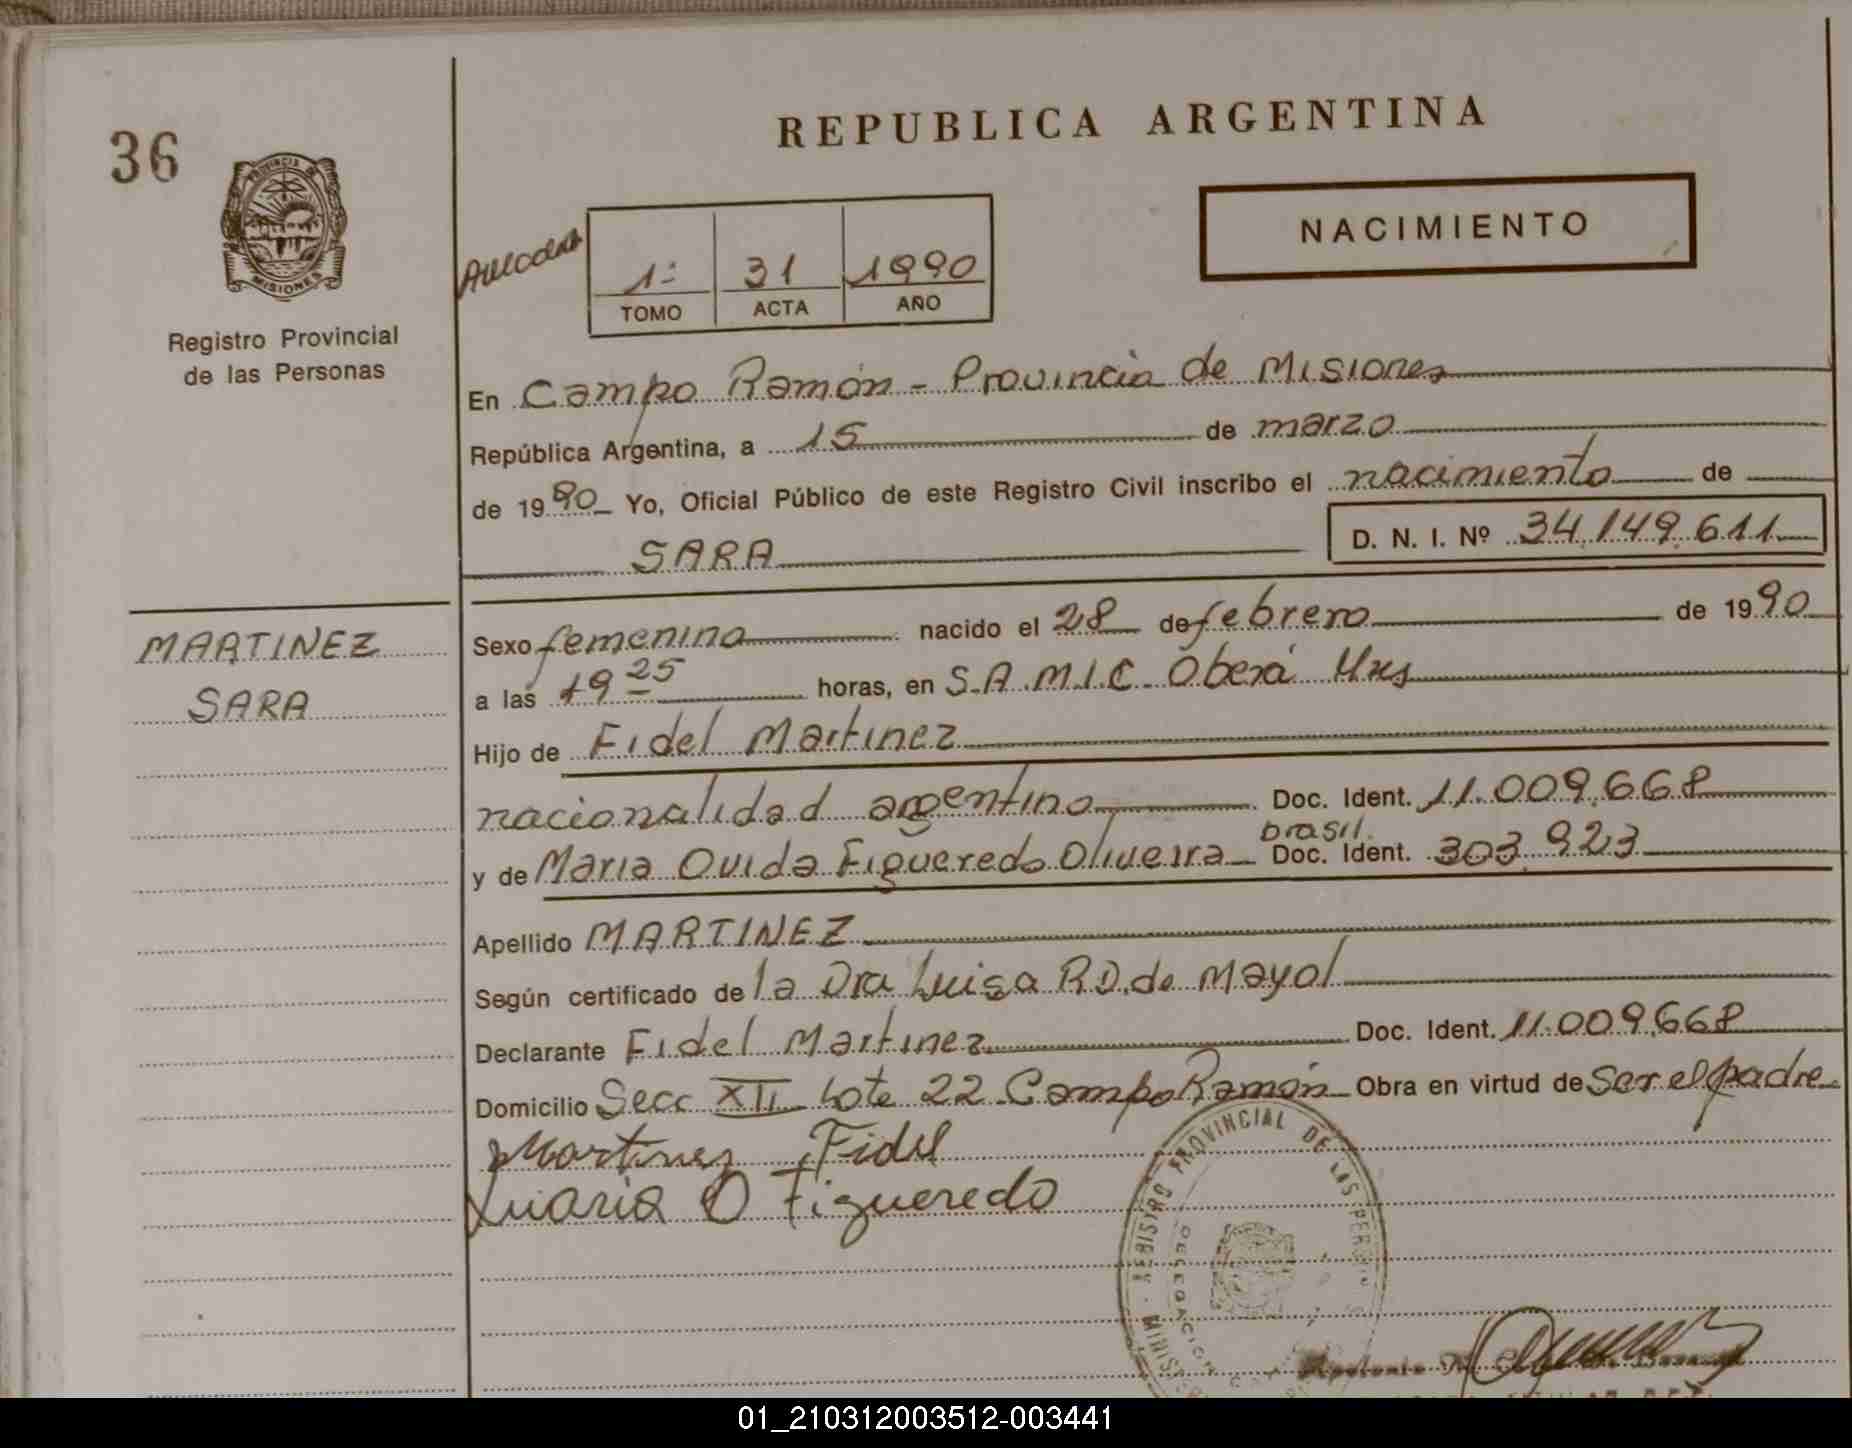 36
PROVINCIA DE
MISIONES
Registro Provincial
de las Personas
MARTINEZ
SARA
REPUBLICA ARGENTINA
NACIMIENTO
1º 31 1990
TOMO ACTA AÑO
En Campo Ramón - Provincia de Misiones
República Argentina, a 15 de marzo
de 1990 Yo, Oficial Público de este Registro Civil inscribo el nacimiento de
SARA D. N. I. Nº 34.149.611
Sexo femenino nacido el 28 de febrero de 1990
a las 19 25 horas, en S.A.M.I.C. Oberá Mns
Hijo de Fidel Martinez
nacionalidad argentino Doc. Ident. 11.009.668
brasil.
y de Maria Ovida Figueredo Oliveira Doc. Ident. 303.923
Apellido MARTINEZ
Según certificado de la Dra Luisa R.D. de Mayol
Declarante Fidel Martinez Doc. Ident. 11.009.668
Domicilio Secc XII Lote 22 Campo Ramón Obra en virtud de Ser el padre
Martinez Fidel
Maria O Figueredo
REGISTRO PROVINCIAL DE LAS PERSON
DELEGACION
01_210312003512-003441